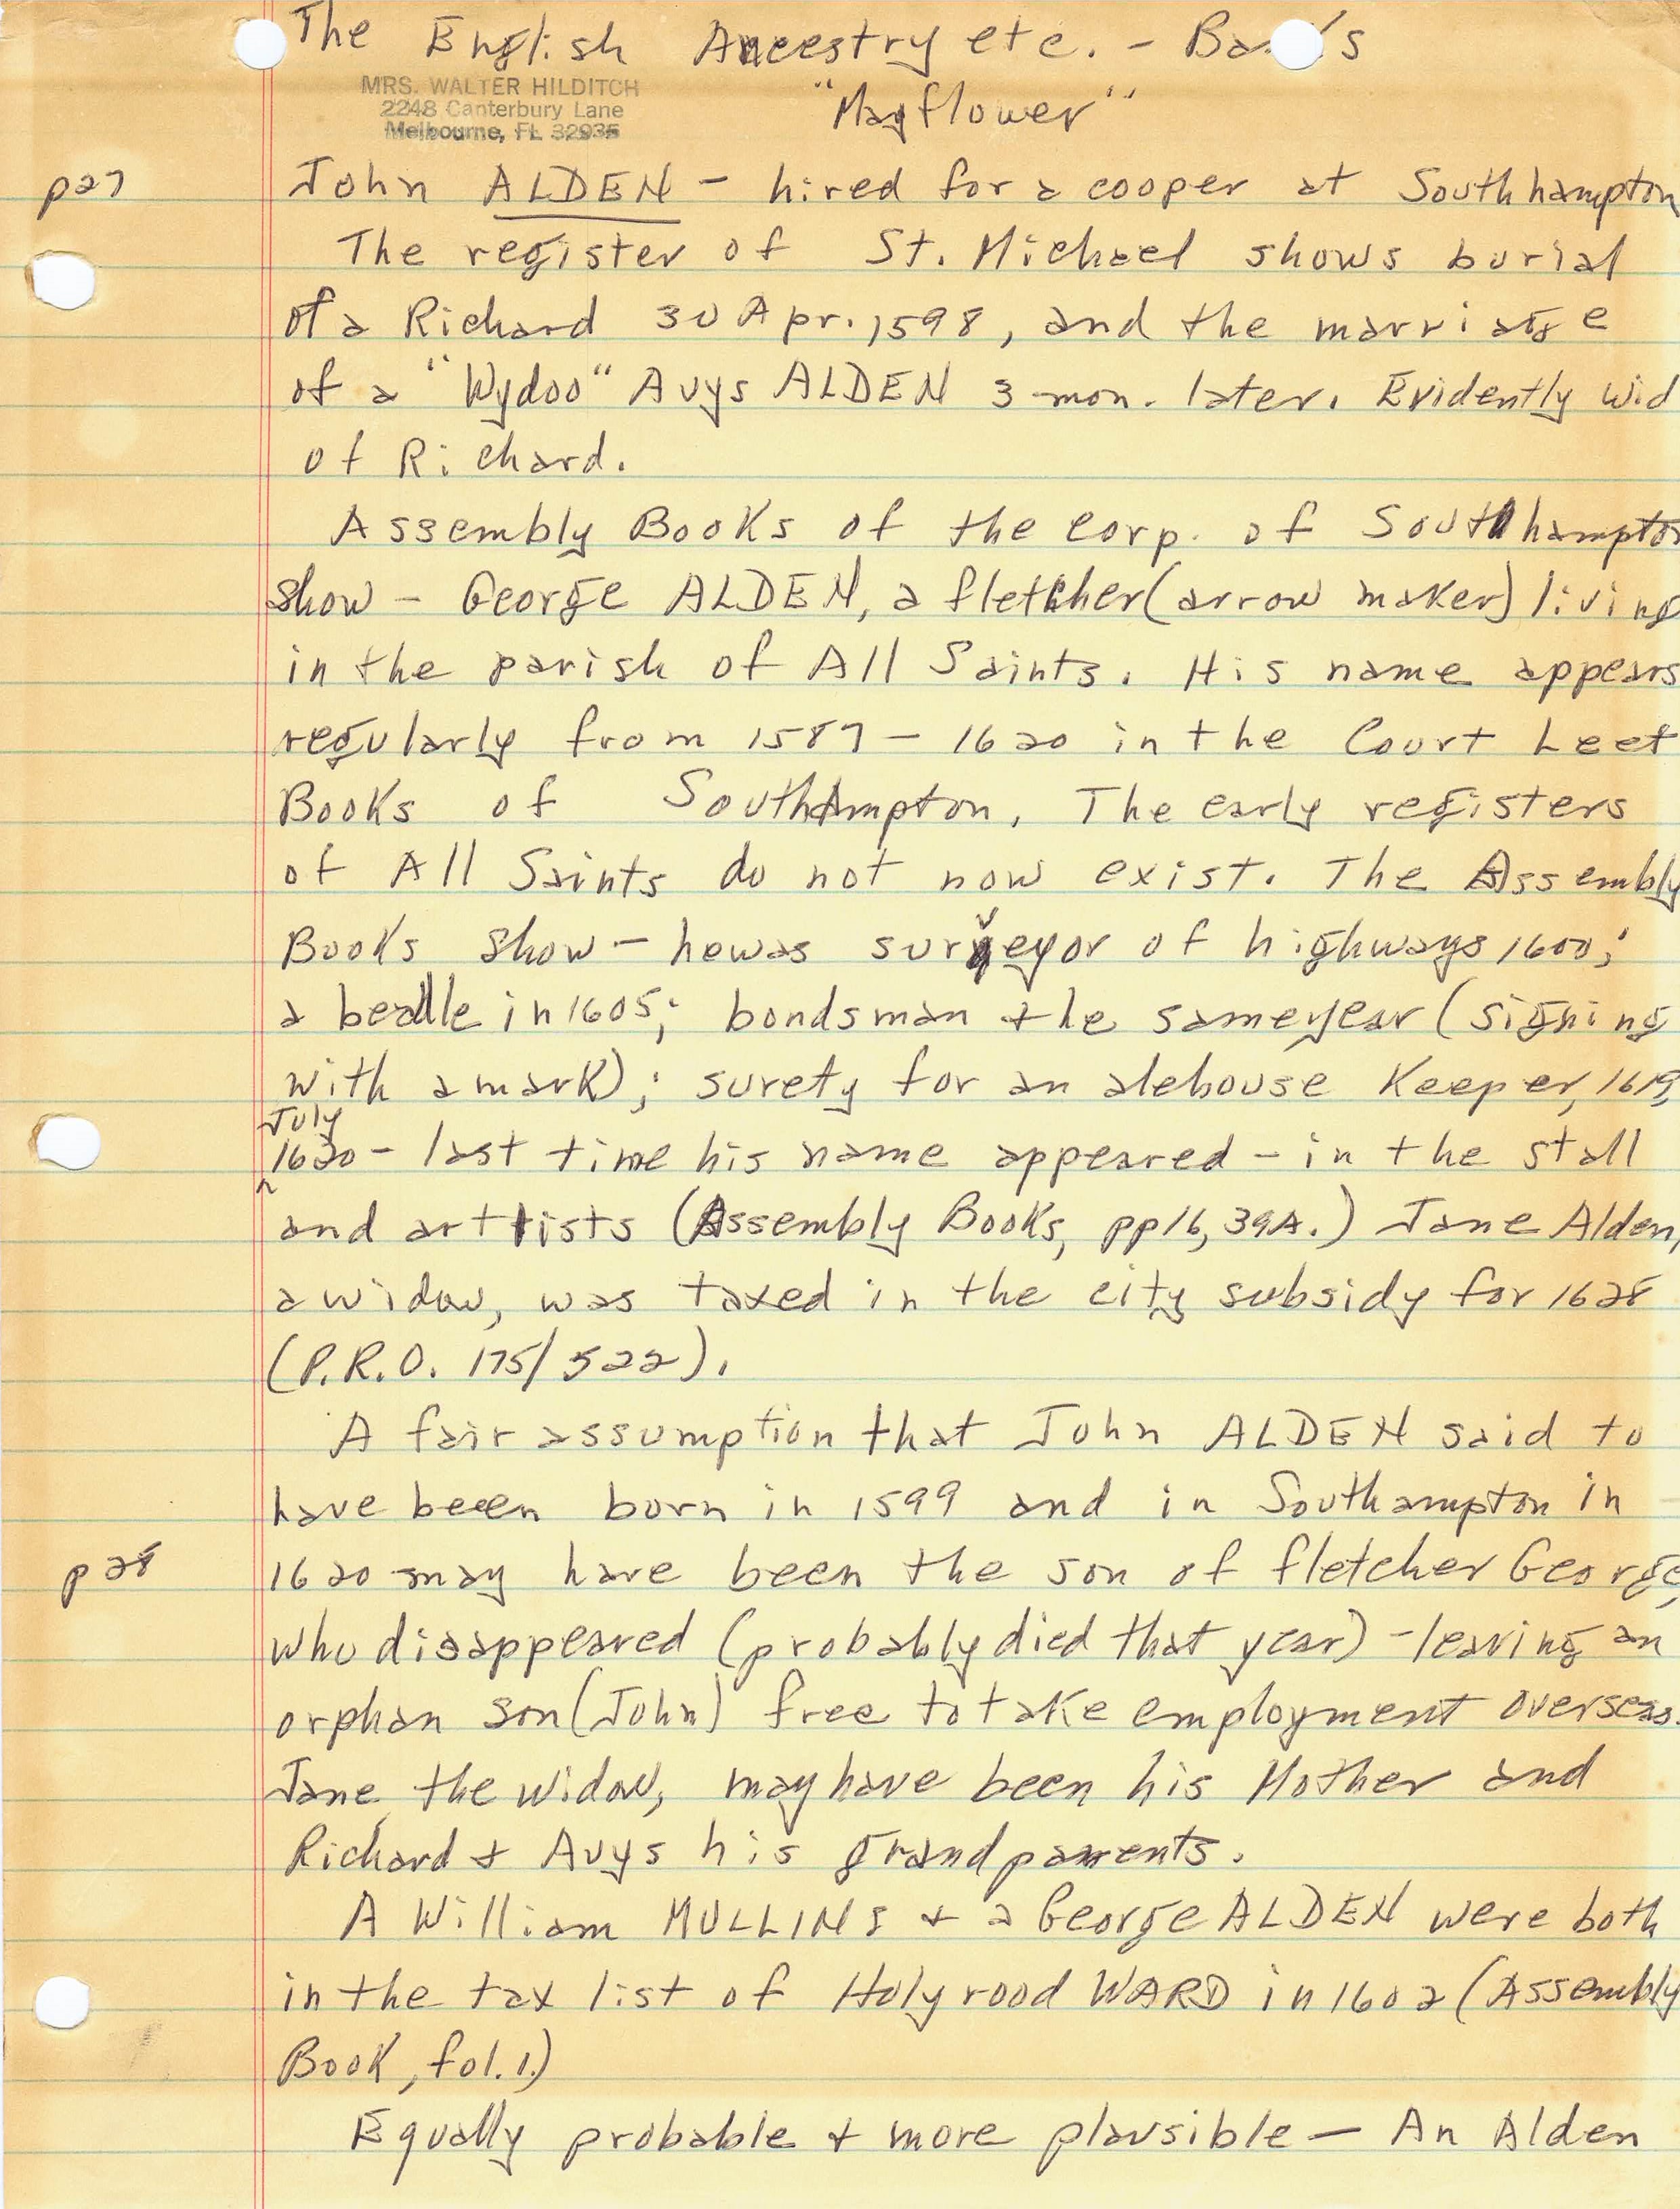 The English Ancestry etc. - Ba's
MRS. WALTER HILDITCH
2248 Canterbury Lane
Melbourne, FL 32935
"Mayflower"
p27 John ALDEN - hired for a cooper at Southhampton
The register of St. Michael shows burial
of a Richard 30 Apr. 1598, and the marriage
of a "Wydoo" Avys ALDEN 3 mon. later. Evidently wid
of Richard.
Assembly Books of the Corp. of Southhampton
show - George ALDEN, a fletcher (arrow maker) living
in the parish of All Saints. His name appears
regularly from 1587 - 1620 in the Court Leet
Books of Southampton. The early registers
of All Saints do not now exist. The Assembly
Books show - he was surveyor of highways 1600;
a beadle in 1605; bondsman the same year (signing
with a mark); surety for an alehouse Keeper, 1619,
July
1620 - last time his name appeared - in the stall
and arttists (Assembly Books, pp16, 39A.) Jane Alden,
a widow, was taxed in the city subsidy for 1628
(P.R.O. 175/522).
A fair assumption that John ALDEN said to
have been born in 1599 and in Southampton in
p28 1620 may have been the son of fletcher George,
who disappeared (probably died that year) - leaving an
orphan son (John) free to take employment overseas.
Jane, the widow, may have been his Mother and
Richard + Avys his grandparents.
A William MULLINS + a George ALDEN were both
in the tax list of Holyrood WARD in 1602 (Assembly
Book, fol. 1.)
Equally probable + more plausible - An Alden